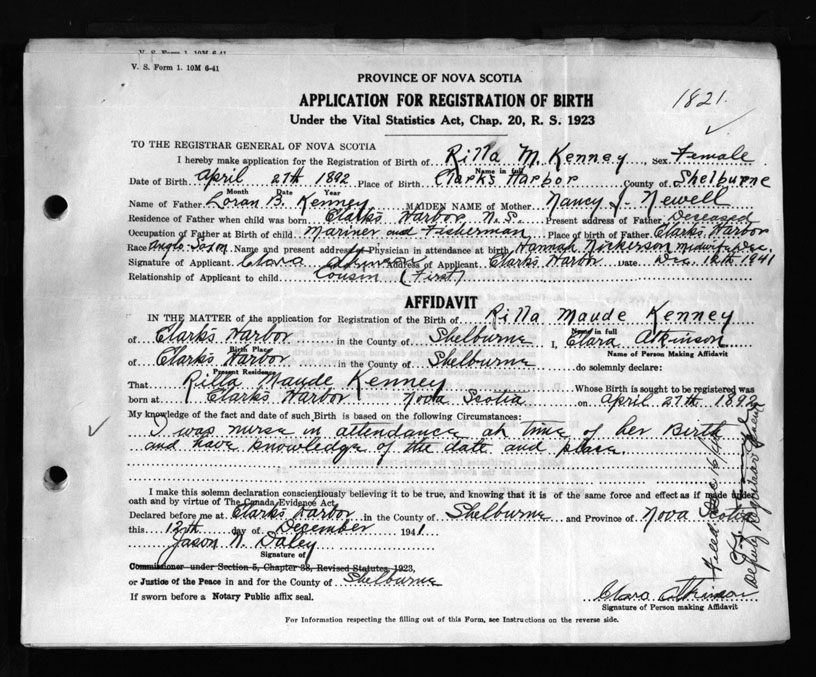 V. S. Form 1. 10M 6-41
V. S. Form 1. 10M 6-41
PROVINCE OF NOVA SCOTIA
APPLICATION FOR REGISTRATION OF BIRTH
1821.
Under the Vital Statistics Act, Chap. 20, R. S. 1923
TO THE REGISTRAR GENERAL OF NOVA SCOTIA
I hereby make application for the Registration of Birth of Rilla M. Kenney, Sex Female
Name in full
Date of Birth April 27th 1892 Place of Birth Clark's Harbor County of Shelburne
Month Date Year
Name of Father Loran B. Kenney MAIDEN NAME of Mother Nancy J. Newell
Residence of Father when child was born Clark's Harbor, N.S. Present address of Father Deceased
Occupation of Father at Birth of child Mariner and Fisherman Place of birth of Father Clark's Harbor
Race Anglo Saxon Name and present address Physician in attendance at birth Hannah Nickerson Midwife Dec
Signature of Applicant Clara Atkinson Address of Applicant Clark's Harbor Date Dec. 12th 1941
Relationship of Applicant to child Cousin (First)
AFFIDAVIT
IN THE MATTER of the application for Registration of the Birth of Rilla Maude Kenney
Name in full
of Clark's Harbor in the County of Shelburne I, Clara Atkinson
Birth Place Name of Person Making Affidavit
of Clark's Harbor in the County of Shelburne do solemnly declare:
Present Residence
That Rilla Maude Kenney Whose Birth is sought to be registered was
born at Clark's Harbor Nova Scotia on April 27th, 1892
My knowledge of the fact and date of such Birth is based on the following Circumstances:
I was nurse in attendance at time of her Birth
and have knowledge of the date and place.
I make this solemn declaration conscientiously believing it to be true, and knowing that it is of the same force and effect as if made under
oath and by virtue of The Canada Evidence Act.
Declared before me at Clark's Harbor in the County of Shelburne and Province of Nova Scotia
this 12th day of December 1941
Jason N. Daley
Signature of
Commissioner under Section 5, Chapter 38, Revised Statutes, 1923,
or Justice of the Peace in and for the County of Shelburne
If sworn before a Notary Public affix seal.
Clara Atkinson
Signature of Person making Affidavit
For Information respecting the filling out of this Form, see Instructions on the reverse side.
Filed Dec 16/41
Deputy Registrar General